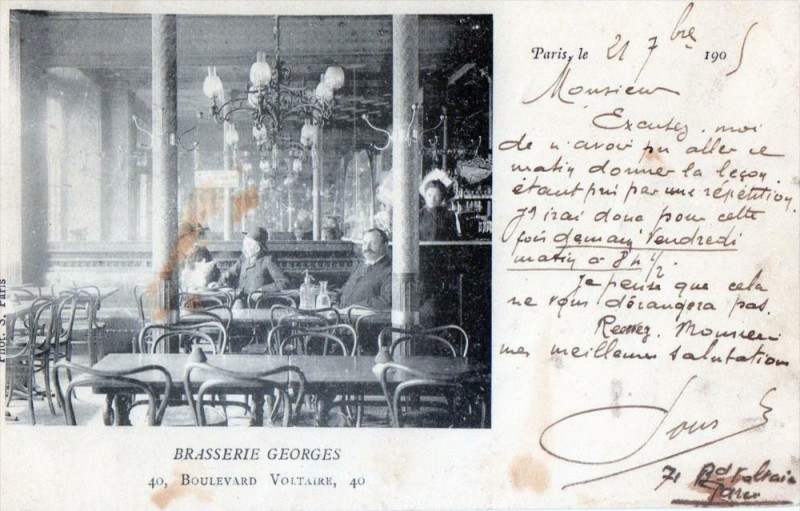 Paris, le 21 7bre 1905
Monsieur
Excusez-moi
de n'avoir pu aller ce
matin donner la leçon,
étant pris par une répétition.
J'irai donc pour cette
fois demain vendredi
matin à 8h 1/2
Je pense que cela
ne vous dérangera pas.
Recevez, Monsieur
mes meilleures salutations
71 Bd Voltaire
Paris
Phot. S. Paris
BRASSERIE GEORGES
40, BOULEVARD VOLTAIRE, 40